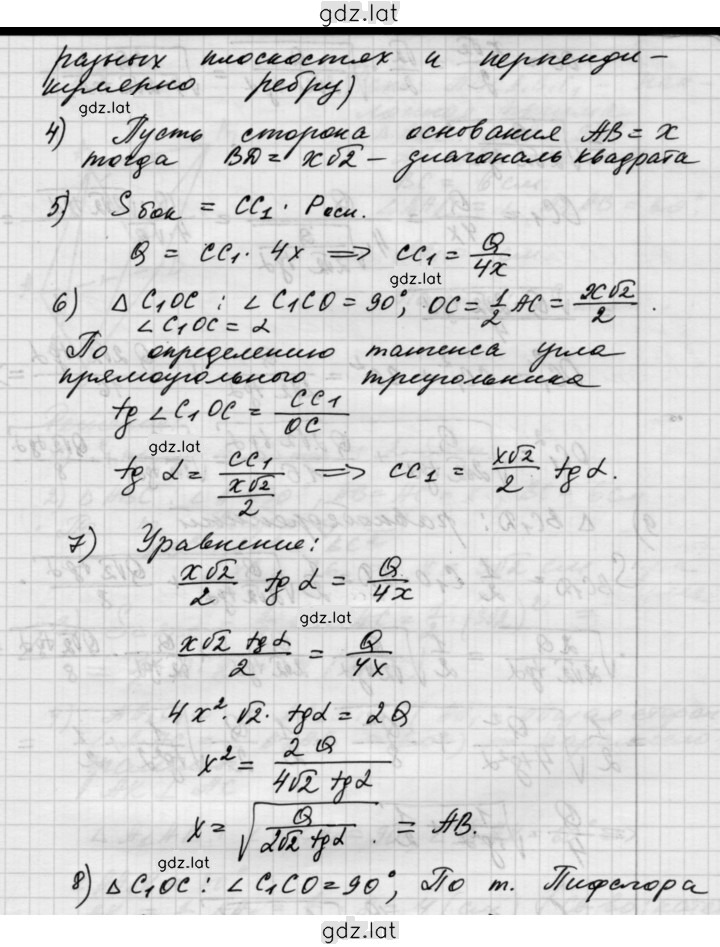 gdz.lat
разных плоскостях и перпенди-
кулярно ребру)
gdz.lat
4) Пусть сторона основания AB = x
тогда BD = x√2 – диагональ квадрата
5) Sбок = CC₁ · Pосн.
Q = CC₁ · 4x ⟹ CC₁ = Q/4x
gdz.lat
6) △ C₁OC : ∠C₁CO = 90°, OC = 1/2 AC = x√2/2 .
∠C₁OC = α
По определению тангенса угла
прямоугольного треугольника
tg ∠C₁OC = CC₁/OC
gdz.lat
tg α = CC₁/(x√2/2) ⟹ CC₁ = x√2/2 tg α.
7) Уравнение:
x√2/2 tg α = Q/4x
gdz.lat
x√2 tg α/2 = Q/4x
4x² · √2 · tg α = 2Q
x² = 2Q/4√2 tg α
x = √(Q/2√2 tg α) . = AB.
gdz.lat
8) △ C₁OC : ∠C₁CO = 90°, По т. Пифагора
gdz.lat